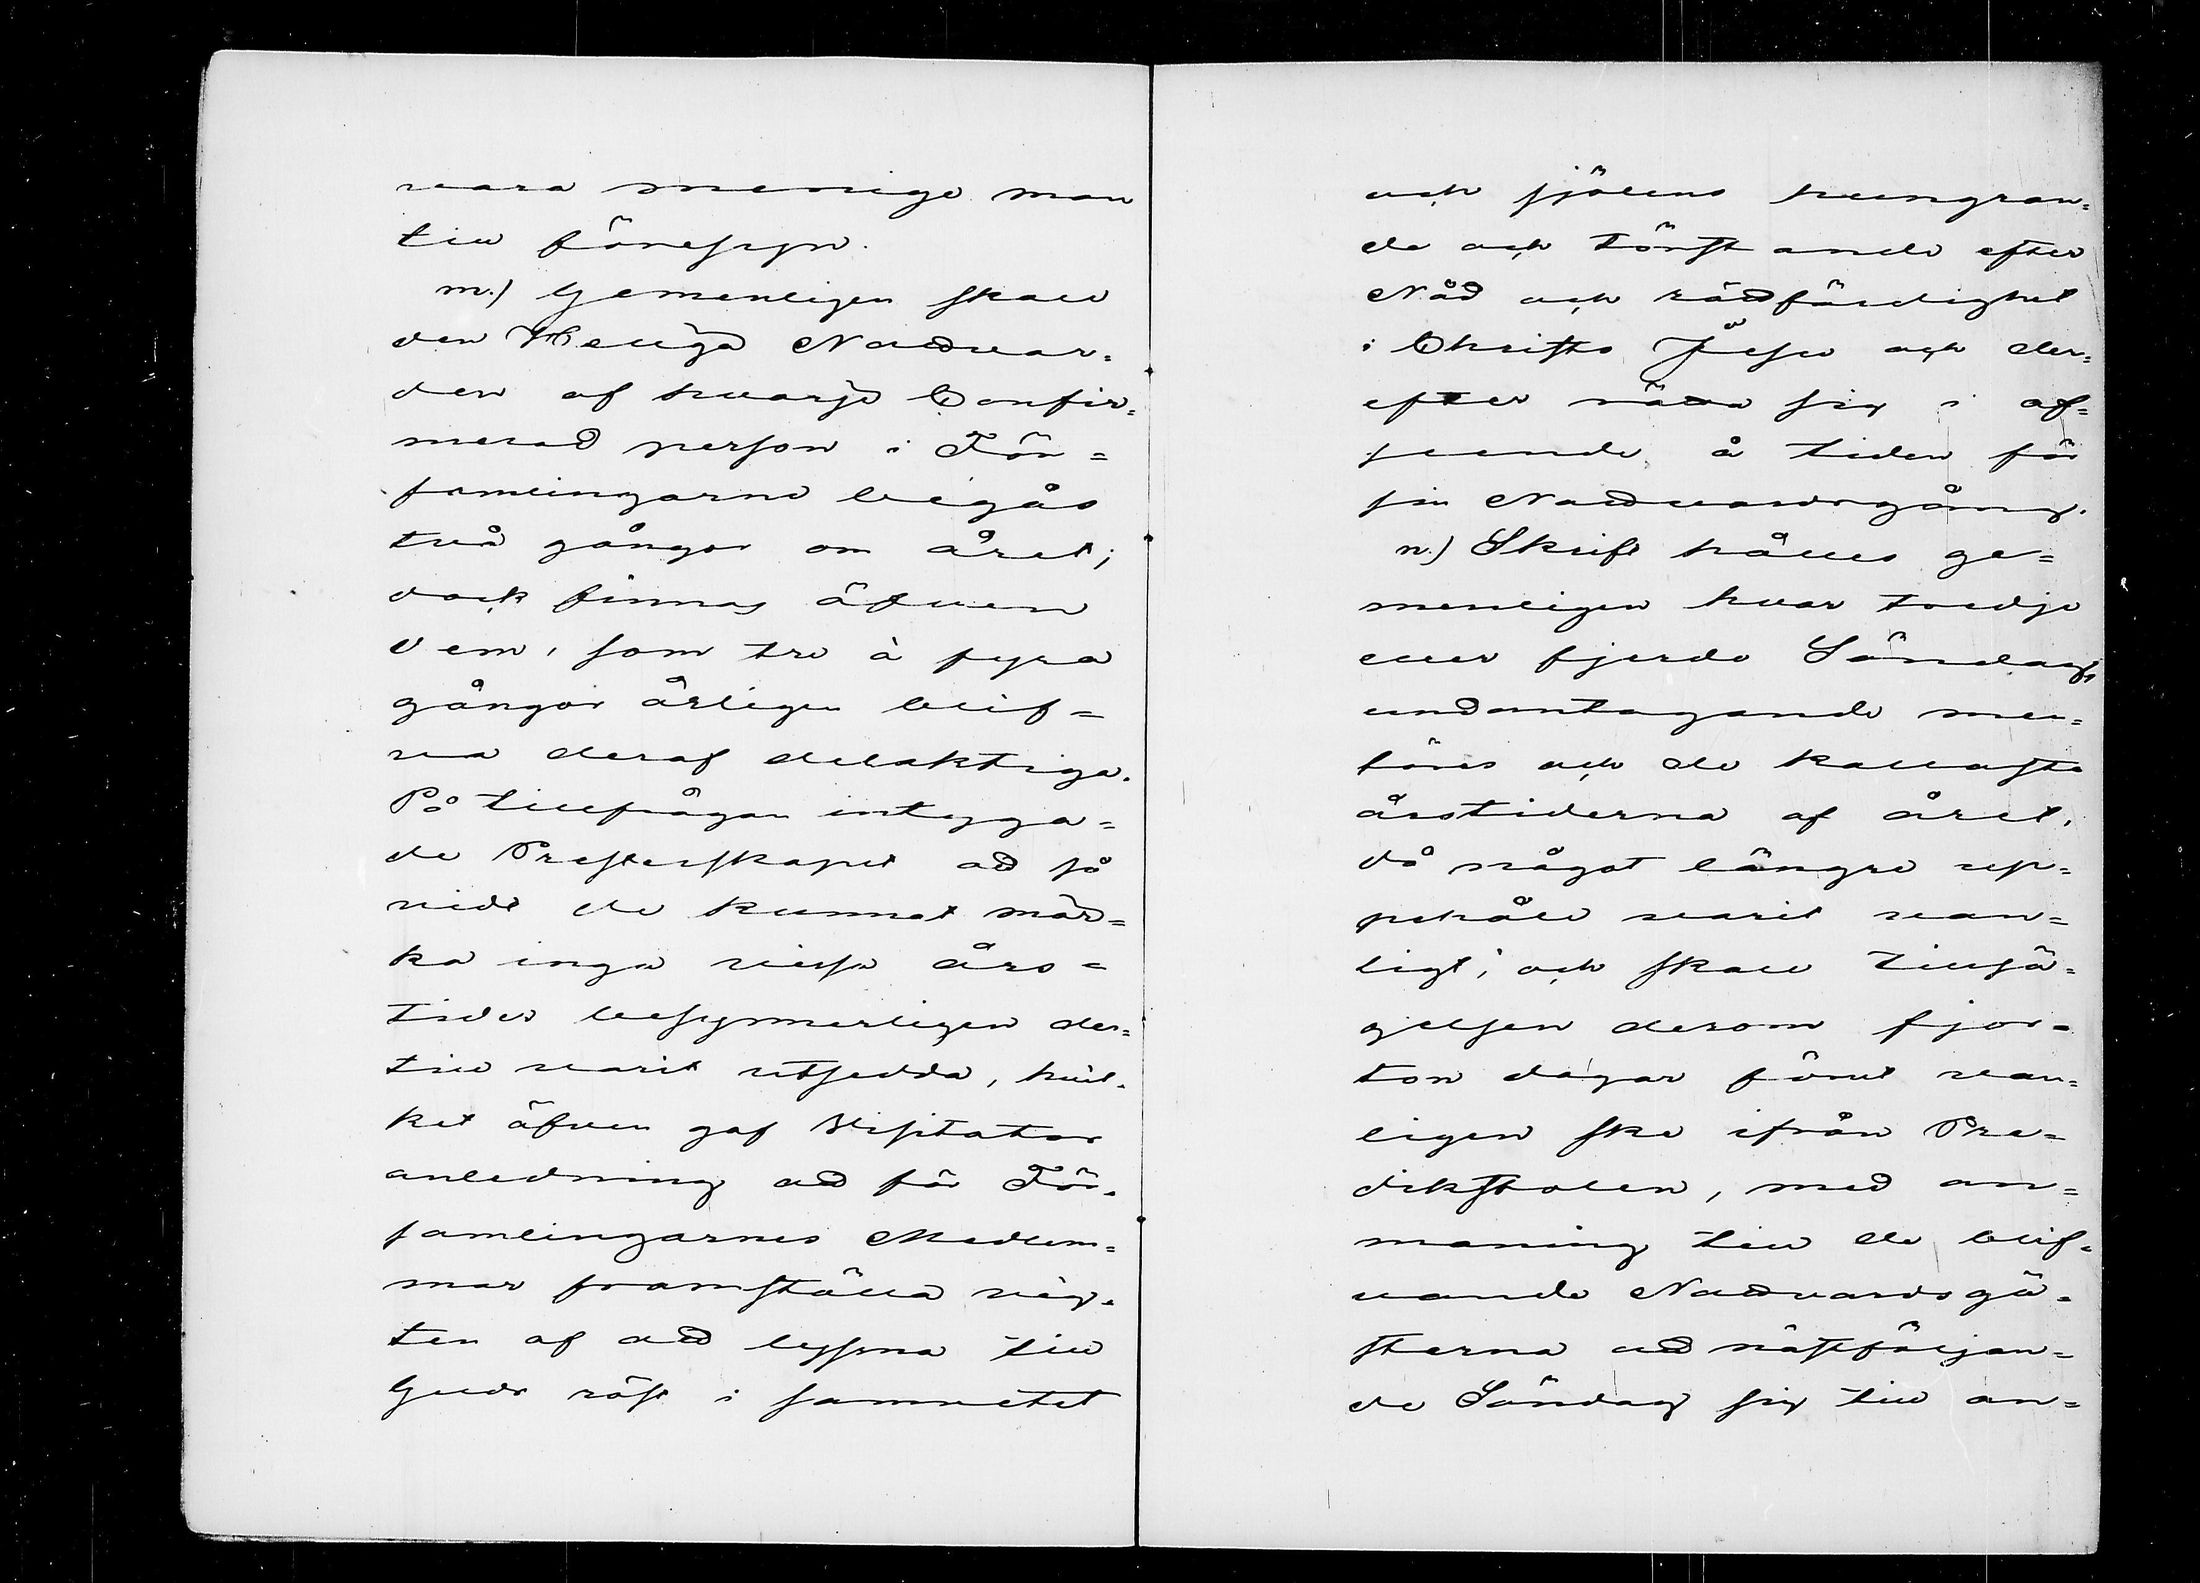 vara menige man
till föresyn.
m.) Gemenligen skall
den Heliga Nattvar=
den af hvarje Confir=
merad person i För=
samlingarne begås
två gångor om året;
dock finnas äfven
dem, som tre à fyra
gångor årligen blif=
va deraf delaktige.
På tillfrågan intyga=
de Presterskapet att så
vidt de kunnat mär=
ka inga vissa års=
tider besynnerligen der=
till varit utsedda, hvil=
ket äfven gaf Visitator
anledning att för För=
samlingarnes Medlem=
mar framställa vig=
ten af att lyssna till
Guds röst i samvetet
och sjölens hungran=
de och törstande efter
Nåd och rättfärdighet
i Christo Jesu och der=
efter rätta sig i af=
seende å tiden för
sin Nattvardsgång.
n.) Skrift hålles ge=
menligen hvar tredje
eller fjerde Söndag,
undantagande men=
föres och de kallaste
årstiderna af året,
då något längre up=
pehåll varit van=
ligt; och skall tillsä=
gelsen derom fjor=
ton dagar förut van=
ligen ske ifrån Pre=
dikstolen, med an=
maning till de blif=
vande Nattvardsgä=
sterna att nästföljan=
de Söndag sig till an=